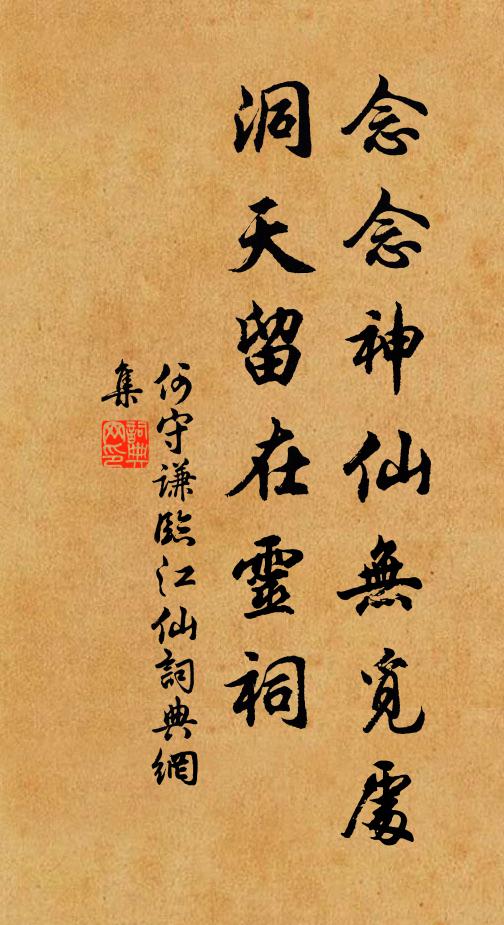 念念神仙無覓處
洞天留在靈祠
何守謙臨江仙詞典網
集
詞典
网印